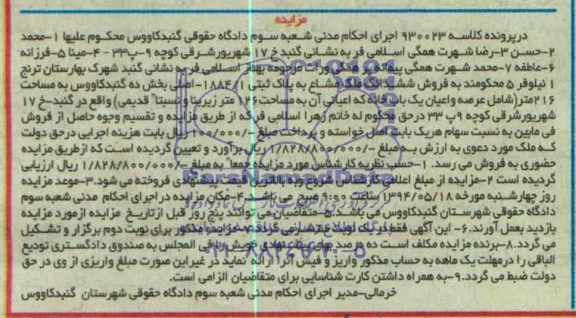 مزایده
درپرونده کلاسه ۹۳۰۰۲۳ اجرای احکام مدنی شعبه سوم دادگاه حقوقی گنبدکاووس محکوم علیها ۱-محمد
۲-حسن ۳-رضا شهرت همگی اسلامی فر به نشانی گنبد خ ۱۷ شهریورشرقی کوچه ۹-پ۳۳ - ۴-مینا ۵-فرزانه
۶-عاطفه ۷-محمد شهرت همگی همگی وراث مرحومه بهناز اسلامی فر به نشانی گنبد شهرک بهارستان ترنج
۱ نیلوفر ۵ محکومند به فروش ششدانگ ملک مشاع به پلاک ثبتی ۱۸۸۴/۱-اصلی بخش ده گنبدکاووس به مساحت
۲۱۶متر(شامل عرصه واعیان یک باب خانه که اعیانی آن به مساحت متر زیربنا و نسبتا قدیمی) واقع در گنبد-خ ۱۷
شهریورشرقی کوچه ۹پ ۳۳ درحق محکوم له خانم زهرا اسلامی فر که از طریق مزایده و تقسیم وجوه حاصل از فروش
فی مابین به نسبت سهام هریک بابت اصل خواسته و پرداخت مبلغ ریال بابت هزینه اجرایی درحق دولت
که ملک مورد دعوی به ارزش به مبلغ ۱/۸۲۸/۸۰۰/۰۰۰ ریال برآورد و تعیین گردیده است که ازطریق مزایده
حضوری به فروش می رسد. ۱-حسب نظریه کارشناس مورد مزایده جمعا به مبلغ ۱/۸۲۸/۸۰۰/۰۰۰ ریال ارزیابی
گردیده است ۲-مزایده از مبلغ اعلامی کارشناس شروع وبه بالاترین قیمت پیشنهادی فروخته می شود.۳-موعد مزایده
روز چهارشنبه مورخه ۱۳۹۴/۰۵/۱۸ ساعت ۹:۰۰ صبح می باشد ۴-مکان مزایده در اجرای احکام مدنی شعبه سوم
دادگاه حقوقی شهرستان گنبدکاووس می باشد.۵-متقاضیان می توانند پنج روز قبل ازتاریخ مزایده از مورد مزایده
بازدید بعمل آورند.۶- این آگهی فقط یک نوبت منتشر می گردد ۷-مزایده مذکور برای نوبت دوم برگزار و تشکیل
می گردد.۸-برنده مزایده مکلف است ده درصد بهای پیشنهادی خویش را فی المجلس به صندوق دادگستری تودیع
الباقی را درمهلت یک ماهه به حساب مذکور واریز و فیش آنرا ارائه نماید در غیراین صورت مبلغ واریزی از وی در حق
دولت ضبط می گردد.۹-به همراه داشتن کارت شناسایی برای متقاضیان الزامی است.
خرمالی-مدیر اجرای احکام مدنی شعبه سوم دادگاه حقوقی شهرستان گنبدکاووس